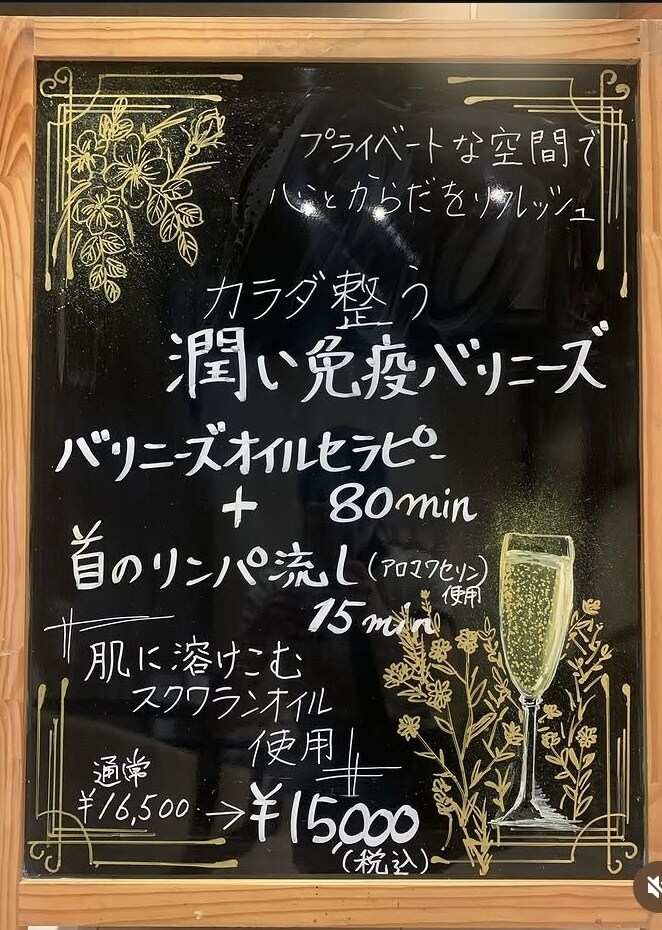 プライベートな空間で
心とからだをリフレッシュ
カラダ整う
潤い免疫バリニーズ
バリニーズオイルセラピー
+ 80min
首のリンパ流し(アロマワセリン)
使用
15min
肌に溶けこむ
スクワランオイル
使用!
通常
¥16,500→¥15,000
(税込)